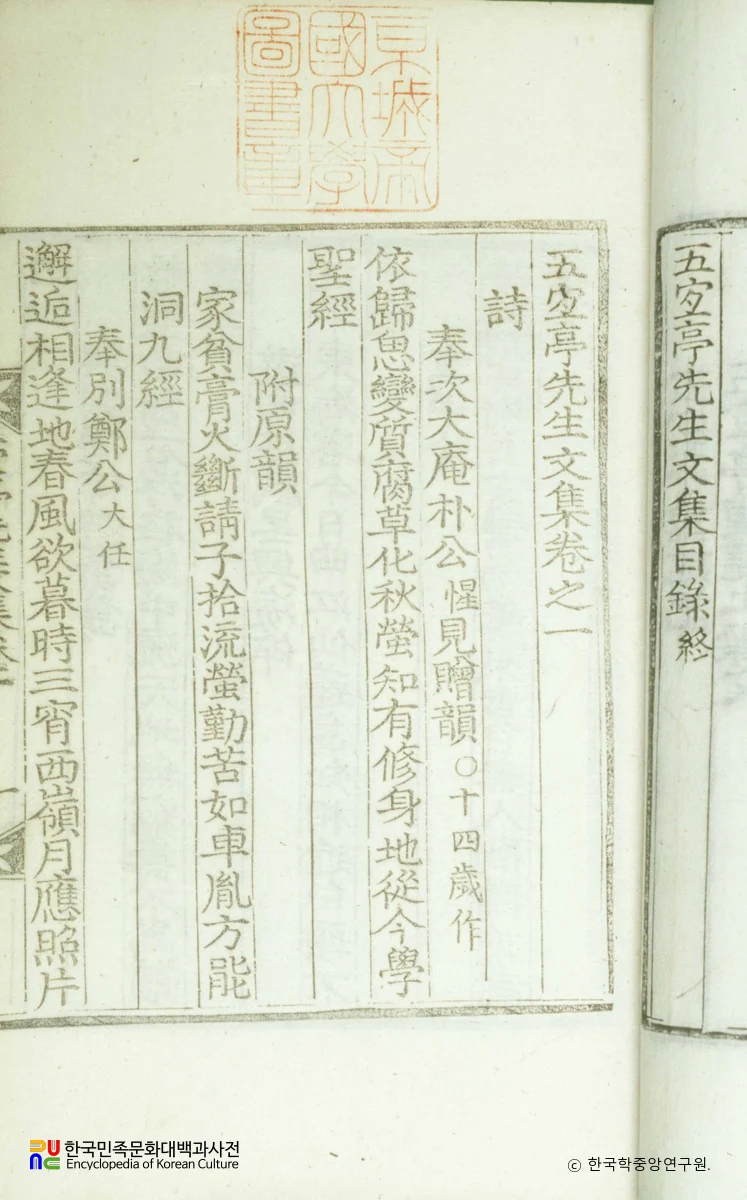 京城帝
國大學
圖書章
五宜亭先生文集目錄終
五宜亭先生文集卷之一
詩
奉次大庵朴公惺見贈韻○十四歲作
依歸思變質腐草化秋螢知有修身地從今學
聖經
附原韻
家貧膏火斷請子拾流螢勤苦如車胤方能
洞九經
奉別鄭公大任
邂逅相逢地春風欲暮時三宵西嶺月應照片
한국민족문화대백과사전
Encyclopedia of Korean Culture
© 한국학중앙연구원.